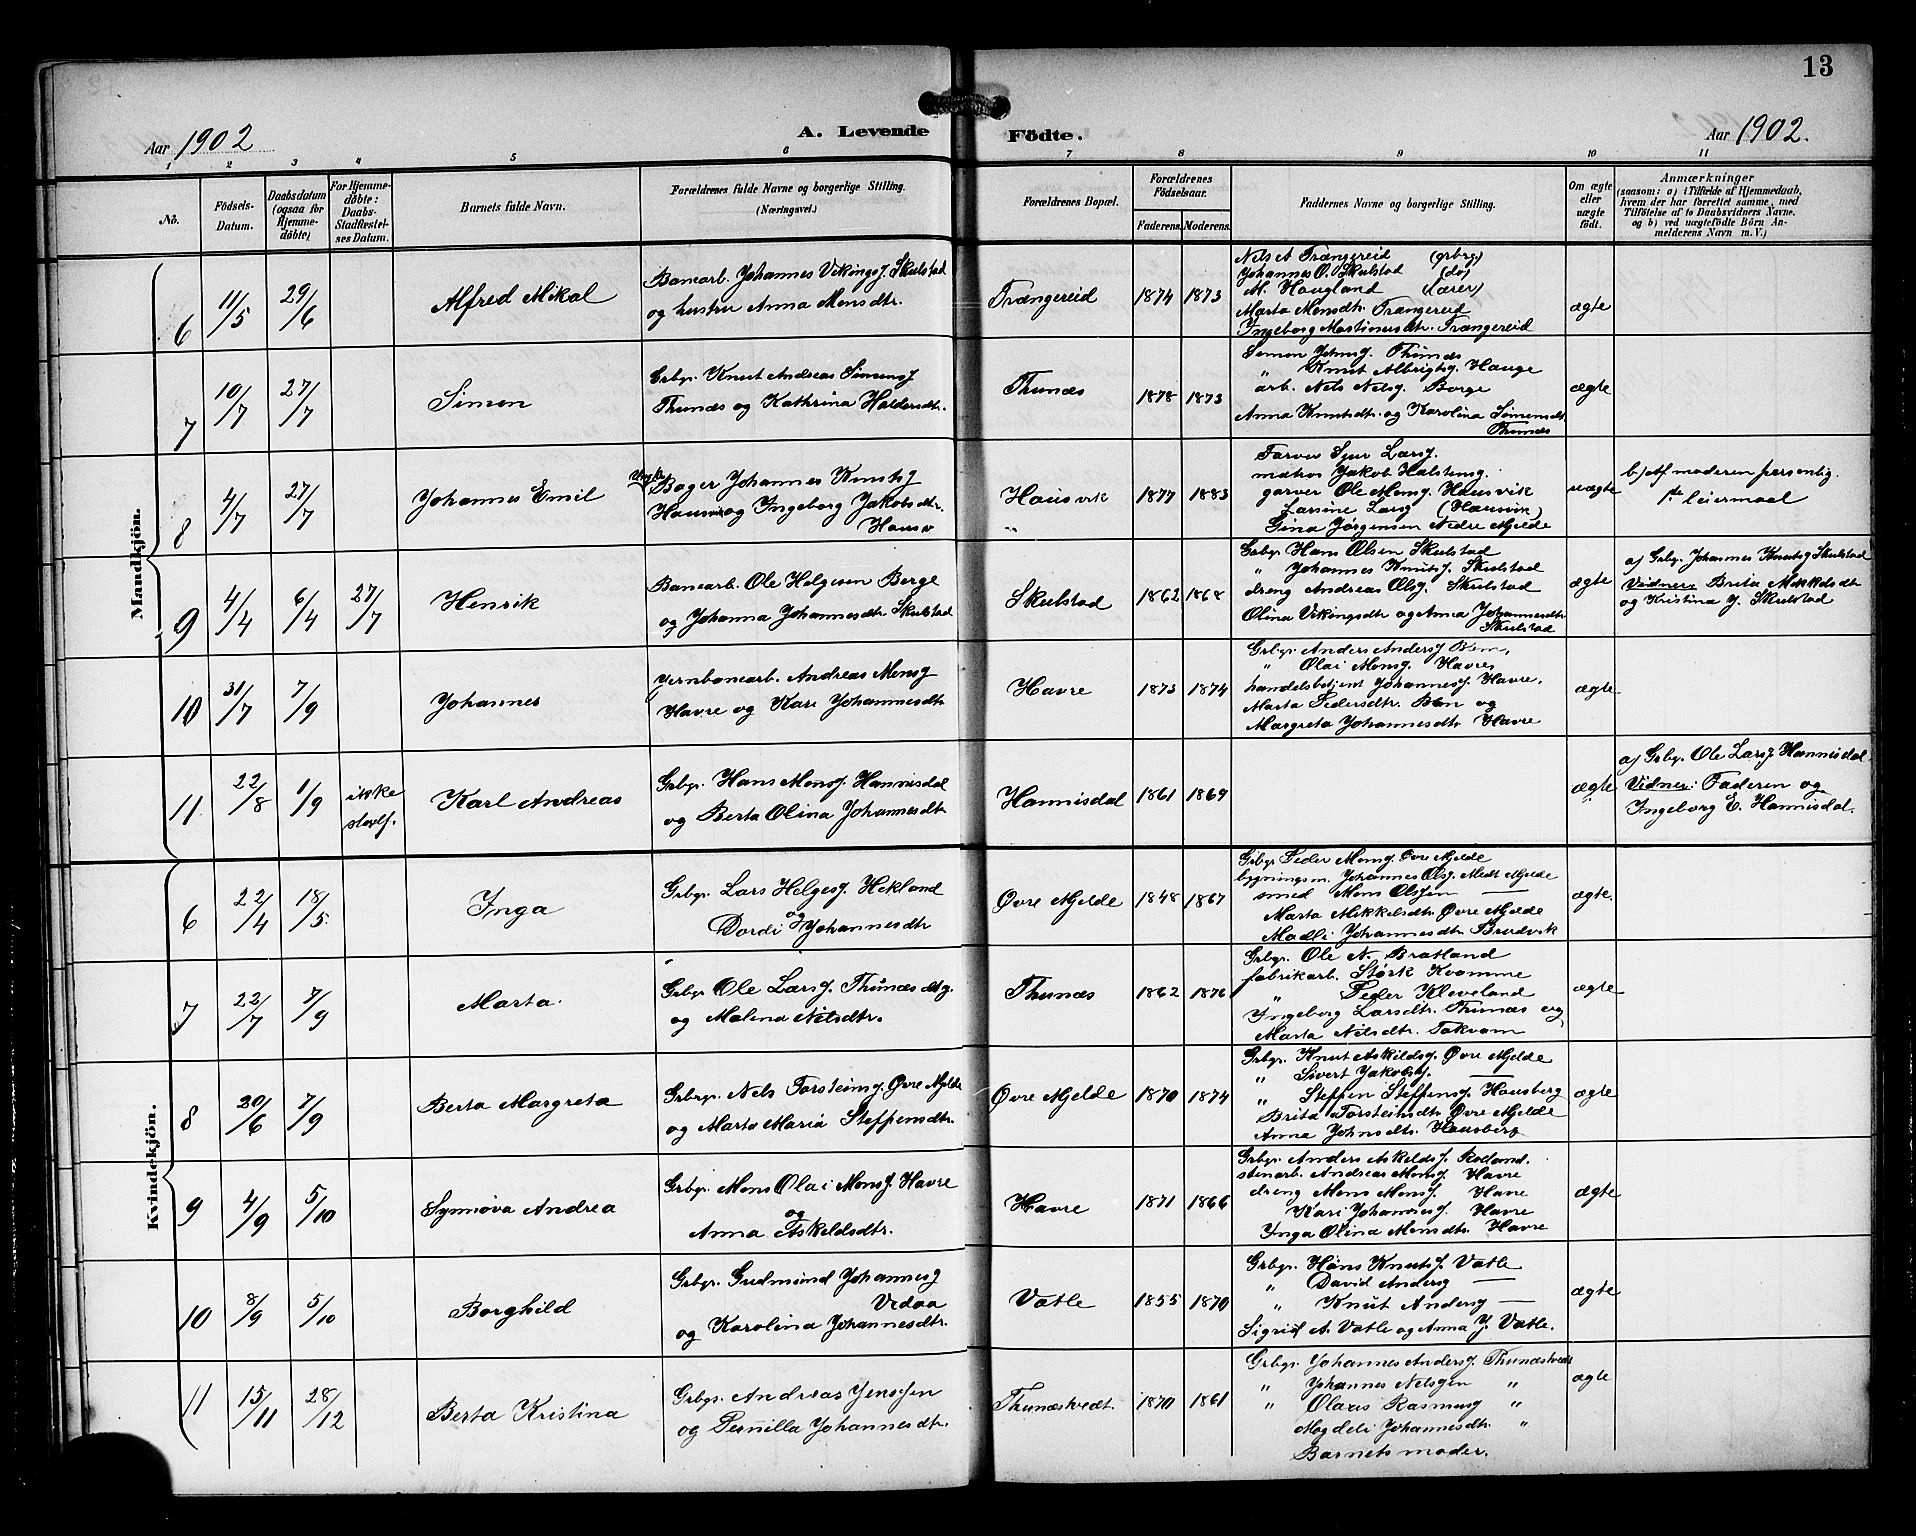 13
Aar 1902
A. Levende Födte.
Aar 1902.
1 2 3 4 5 6 7 8 9 10 11
No.
Födsels-
Datum.
Daabsdatum
(ogsaa for
Hjemme-
döbte)
For Hjemme-
döbte:
Daabs-
Stadfæstel-
ses Datum.
Barnets fulde Navn.
Forældrenes fulde Navne og borgerlige Stilling.
(Næringsvei.)
Forældrenes Bopæl.
Forældrenes
Födselsaar.
Faderens. Moderens.
Faddernes Navne og borgerlige Stilling.
Om ægte
eller
uægte
födt.
Anmærkninger
(saasom: a) i Tilfælde af Hjemmedaab,
hvem der har forrettet samme, med
Tilföielse af to Daabsvidners Navne.
og b) ved uægtefödte Börn An-
melderens Navn m. V.)
Mandkjön.
6 11/5 29/6
Alfred Mikal
Banearb. Johannes Vikingsf. Skulstad
og hustru Anna Monsdtr.
Trængereid
1874 1873
Nils A Trængereid (grbrg)
Johannes O. Skulstad (do)
M. Haugland (lærer)
Marta Monsdtr. Trængereid
Ingeborg Martinusdtr. Trængereid
ægte
7 10/7 27/7
Simon
Grbgr. Knut Andreas Simonsf
Thunæs og Kathrina Haldorsdtr.
Thunæs
1878 1873
Simon Johnsf. Thunæs
" Knut Albrigtsf. Hauge
arb. Nils Nilsf. Borge
Anna Knutsdtr. og Karolina Simonsdt.
Thunæs
ægte
8 4/7 27/7
Johannes Emil
Ungkr.
Bager Johannes Knutsf
Hausvik og Ingeborg Jakobsdtr.
Hausv
Hausvik
"
1877 1883
Farver Sjur Larsf.
matros Jakob Halstensf.
garver Ole Monsf. Hausvik
Larsine Larsf (Hausvik)
Gina Jørgensen Nedre Mjelde
uægte
b) Af moderen personlig.
1ste leiermaal
9 4/4 6/4 27/7
Henrik
Banearb. Ole Helgesen Berge
og Johanna Johannesdtr. Skulstad
Skulstad
1862 1868
Grbgr. Hans Olsen Skulstad
" Johannes Knutsf. Skulstad
dreng Andreas Olsf. Skulstad
Olina Vikingsdtr og Anna Johannesdtr.
Skulstad
ægte
af Grbgr. Johannes Knutsf Skulstad
Vidner: Brita Mikkelsdtr
og Kristina J. Skulstad
10 31/7 7/9
Johannes
Jernbanearb. Andreas Monsf
Havre og Kari Johannesdtr
Havre
1873 1874
Grbgr. Anders Andersf Bøen,
" Olai Monsf. Havre,
handelsbetjent Johannesf. Havre,
Marta Pedersdtr. Bøen og
Margreta Johannesdtr. Havre
ægte
11 22/8 1/9
ikke
stadf.
Karl Andreas
Grbgr. Hans Monsf. Hannisdal
og Berta Olina Johannesdtr
Hannisdal
1861 1869
ægte
af Grbgr. Ole Larsf. Hannisdal
Vidner: Faderen og
Ingeborg E. Hannisdal.
Kvindekjön.
6 22/4 18/5
Inga
Grbgr. Lars Helgesf. Hekland
og
Dordi Johannesdtr
Øvre Mjelde
1848 1867
Grbgr. Peder Monsf. Øvre Mjelde
bygningsm. Johannes Olsf. Midt Mjelde
smed Mons Olsen —
Marta Mikkelsdtr. Øvre Mjelde
Madli Johannesdtr. Bruvik
ægte.
7 22/7 7/9
Marta.
Grbgr. Ole Larsf. Thunæs
og Malena Nilsdtr.
Thunæs
1862 1876
Grbgr. Ole N. Bratland
fabrikarb. Størk Kvamme
" Peder Kleveland
Ingeborg Larsdtr. Thunæs og
Marta Nilsdtr. Takvam
ægte
8 20/6 7/9
Berta Margreta
Grbrgr. Nils Torsteinsf. Øvre Mjelde
og Marta Maria Steffensdtr.
Øvre Mjelde
1870 1874
Grbgr. Knut Askildsf. Øvre Mjelde
" Sivert Jakobsf. —
" Steffen Steffensf. Hausberg
Brita Torsteinsdtr. Øvre Mjelde
Anna Johnsdtr. Hausberg
ægte
9 4/9 5/10
Synnøva Andrea
Grbgr. Mons Olai Monsf. Havre
og
Anna Askildsdtr.
Havre
1871 1866
Grbgr. Anders Askeldsf. Rolland.
stenarb. Andreas Monsf. Havre
dreng Mons Monsf. Havre
Kari Johannesf. Havre
Inga Olina Monsdtr. Havre
ægte
10 8/9 5/10
Borghild
Grbgr. Gudmund Johannesf
Vedaa
og Karolina Johannesdtr.
Vatle
1855 1870
Grbgr. Hans Knutsf. Vatle
" David Andersf —
" Knut Andersf —
Sigrid A. Vatle og Anna J. Vatle.
ægte
11 15/11 28/12
Berta Kristina
Grbgr. Andreas Jensen
og Pernilla Johannesdtr.
Thunæstvedt.
1870 1861
Grbgr. Johannes Andersf. Thunæstvedt
" Johannes Nilsen "
" Olaus Rasmusf "
Magdeli Johannesdtr. "
Barnets moder.
ægte